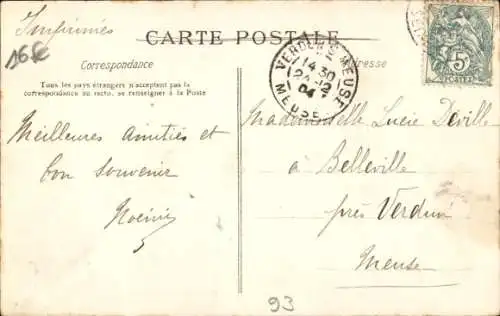 Imprimés
16€
CARTE POSTALE
Correspondance
Adresse
Tous les pays étrangers n'acceptent pas la
correspondance au recto, se renseigner à la Poste
VERDUN S MEUSE
14 30
24 - 12
04
MEUSE
5c
POSTES
Meilleures amitiés et
bon souvenir
Noémie
Mademoiselle Lucie Déville
à Belleville
près Verdun
Meuse
93